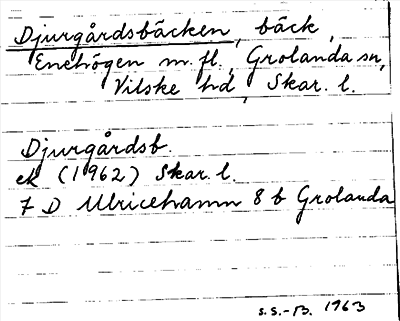 Djurgårdsbäcken, bäck,
Enehögen m. fl., Grolanda sn,
Vilske hd, Skar. l.
Djurgårdsb.
ek (1962) Skar. l.
7 D Ulricehamn 8 b Grolanda
S.S.-B. 1963